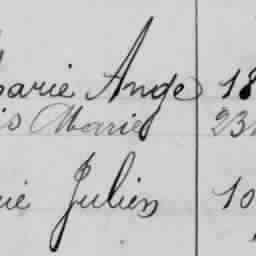 Marie Ange 18
is Marie 23
rie Julien 10